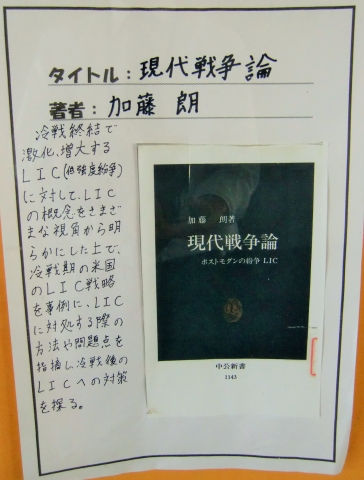 タイトル：現代戦争論
著者：加藤 朗
冷戦終結で
激化、増大する
LIC(低強度紛争)
に対して、LIC
の概念をさまざ
まな視角から明
らかにした上で、
冷戦期の米国
のLIC戦略
を事例に、LIC
に対処する際の
方法や問題点を
指摘し冷戦後の
LICへの対策
を探る。
加藤 朗著
現代戦争論
ポストモダンの紛争 LIC
中公新書
1143